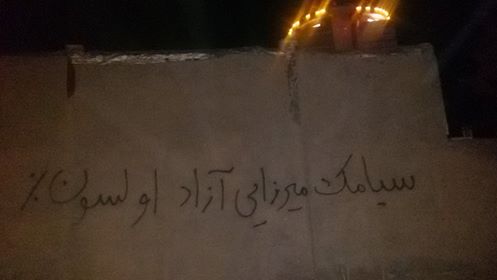 سیامک میرزایی آزاد اولسون٪